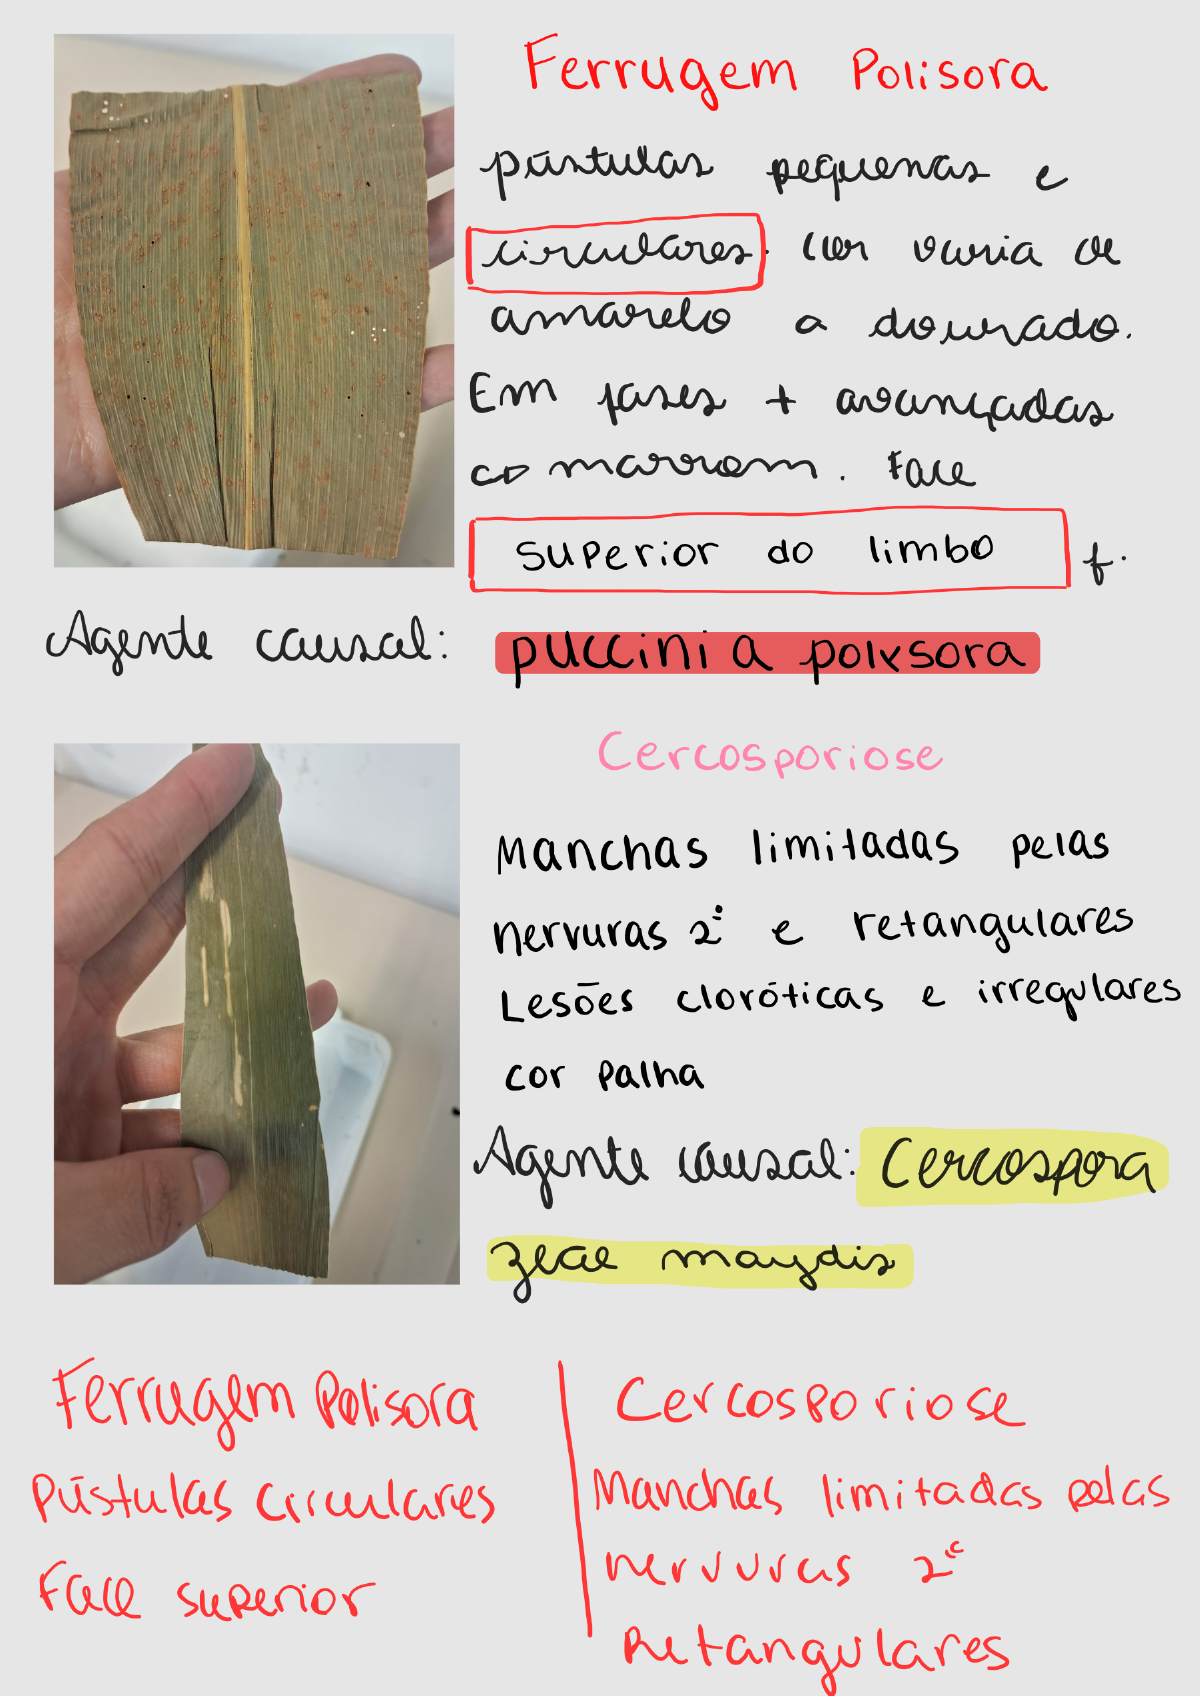 Ferrugem Polisora
pústulas pequenas e
circulares. cor varia de
amarelo a dourado.
Em fases + avançadas
marrom. Face
superior do limbo f.
Agente causal: puccinia polysora
Cercosporiose
Manchas limitadas pelas
nervuras 2ª e retangulares
Lesões cloróticas e irregulares
cor palha
Agente causal: Cercospora
zeae maydis
Ferrugem Polisora
Pústulas circulares
Face superior
Cercosporiose
Manchas limitadas pelas
nervuras 2ª
Retangulares